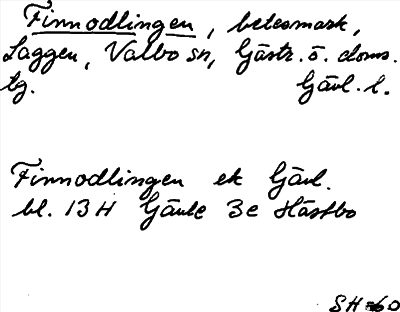 Finnodlingen, betesmark,
Laggen, Valbo sn, Gästr. ö. doms.
tg. Gävl. l.
Finnodlingen ek Gävl.
bl. 13 H Gävle 3e Hästbo
SH 60